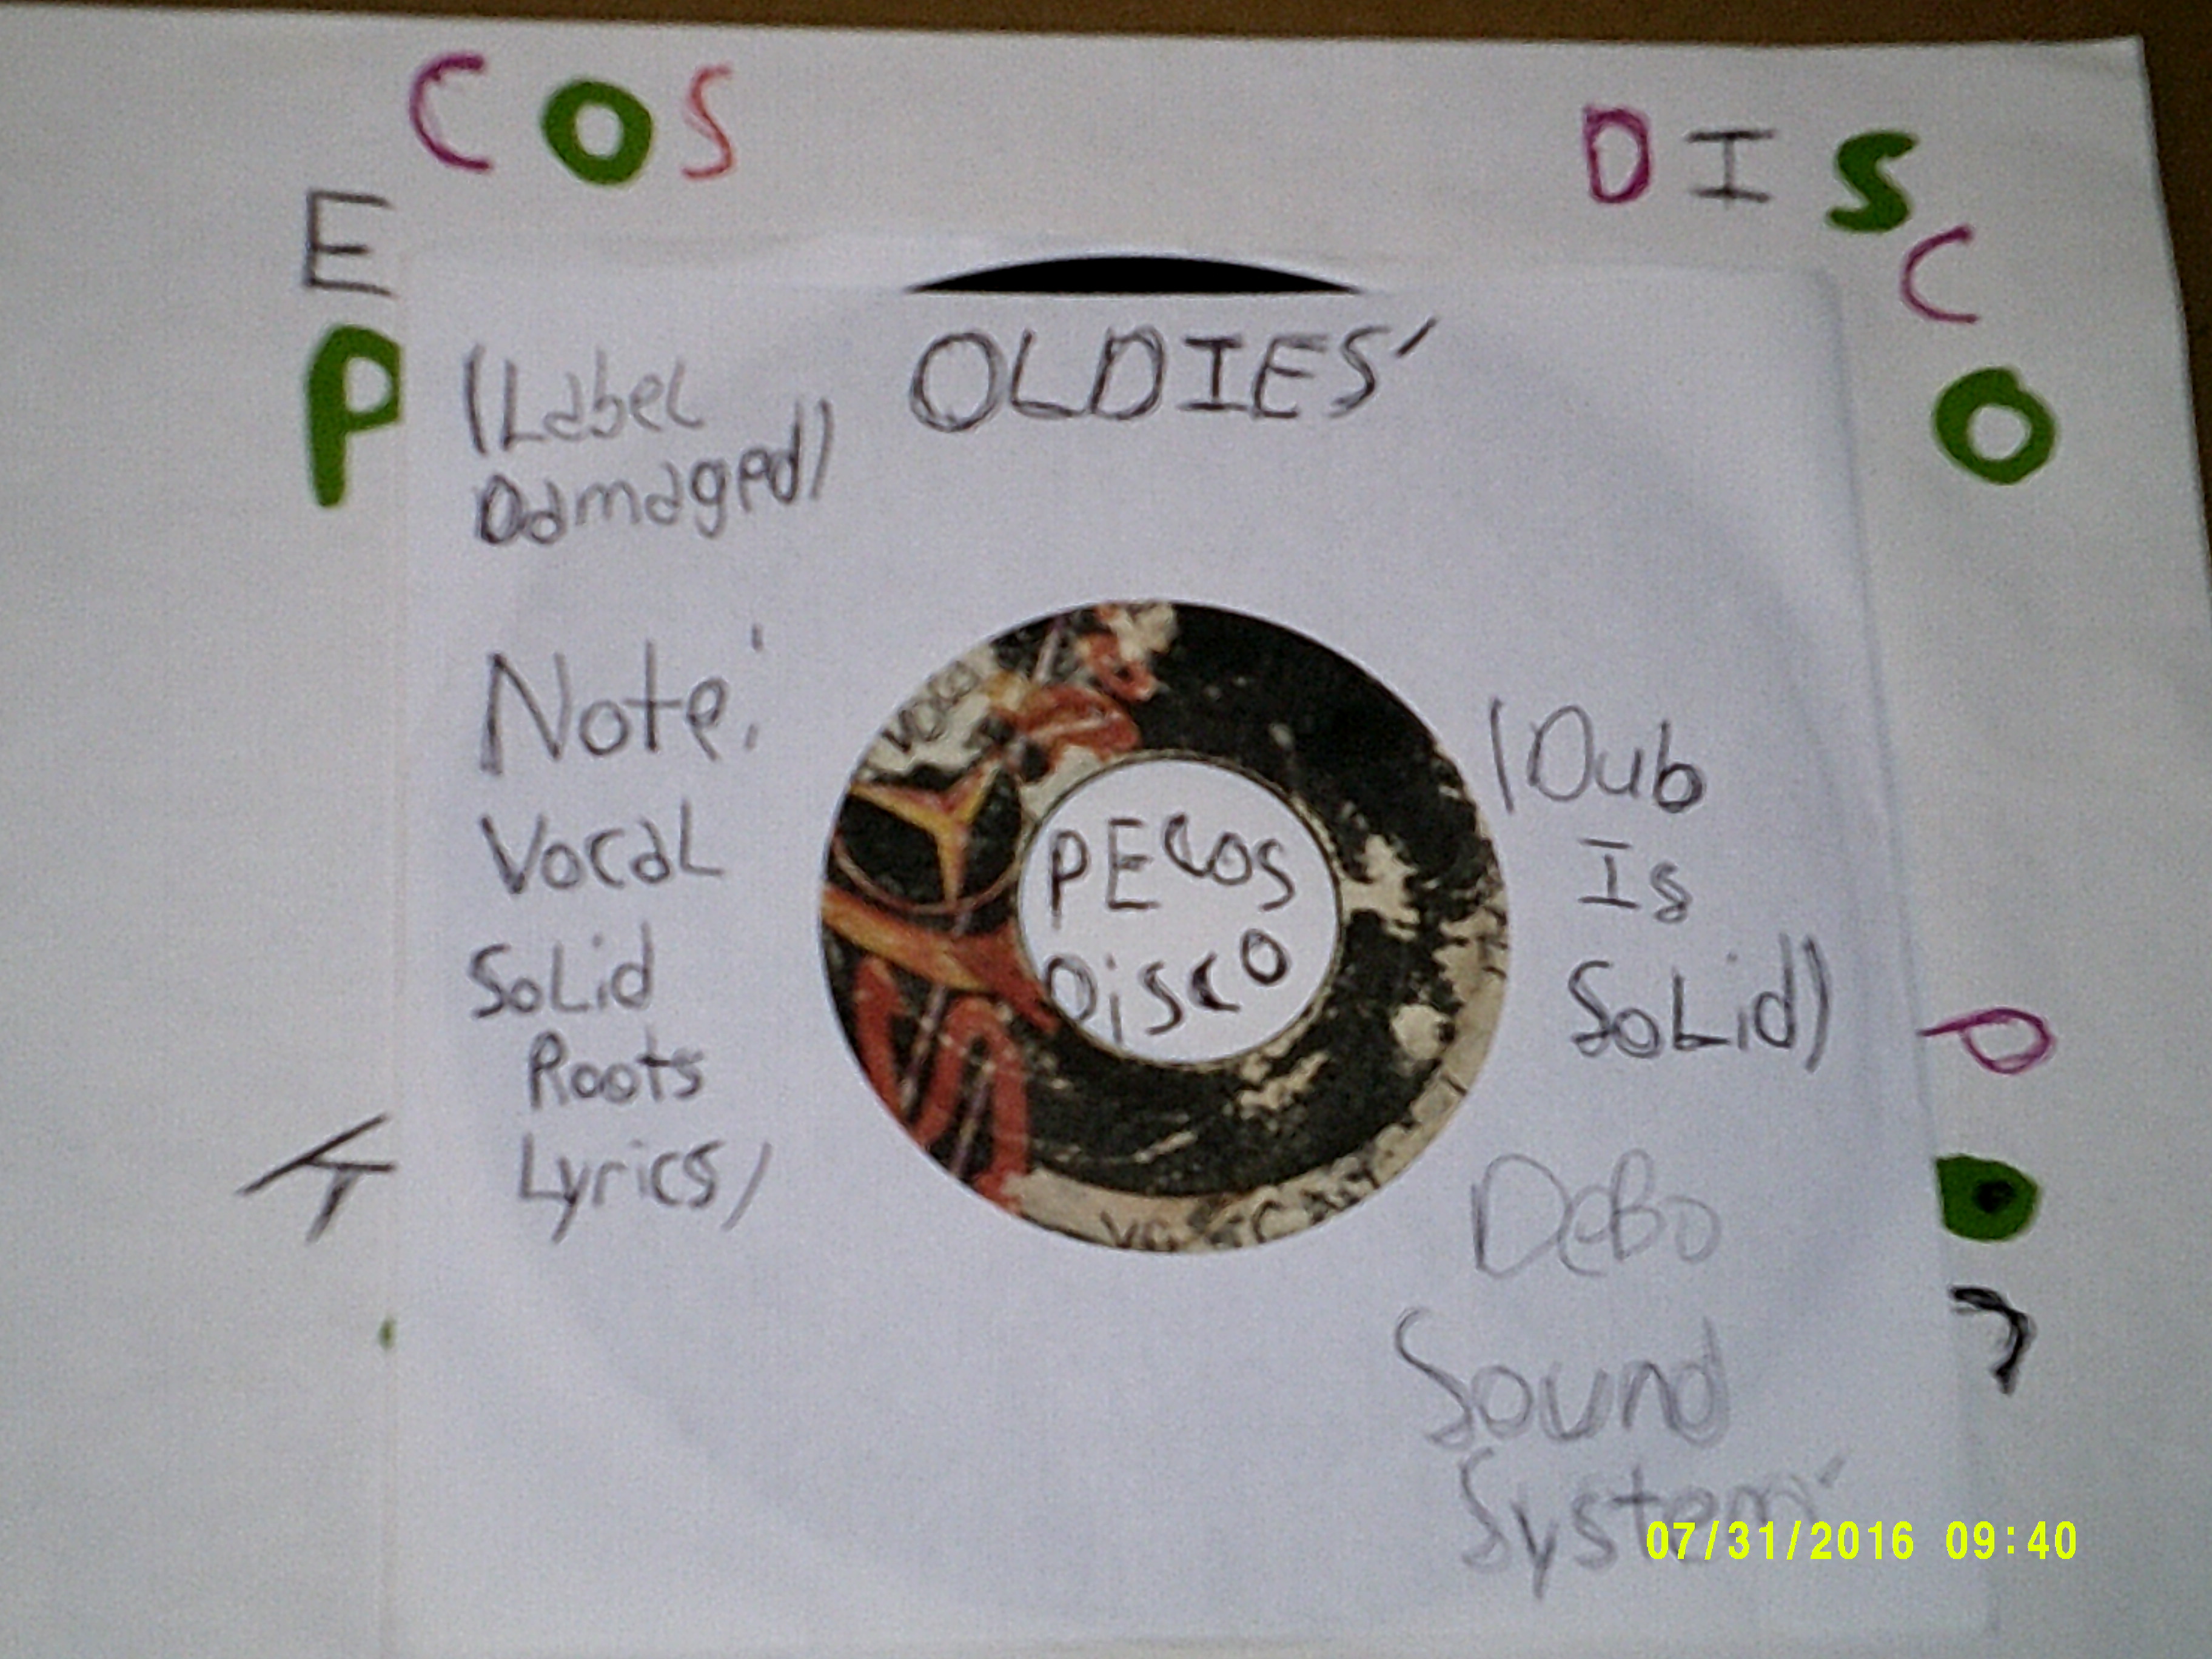 PECOS DISCO
OLDIES'
(Label
Damaged)
Note:
Vocal
Solid
Roots
Lyrics)
(Dub
Is
Solid)
PECOS
Disco
DeBo
Sound
System
07/31/2016 09:40